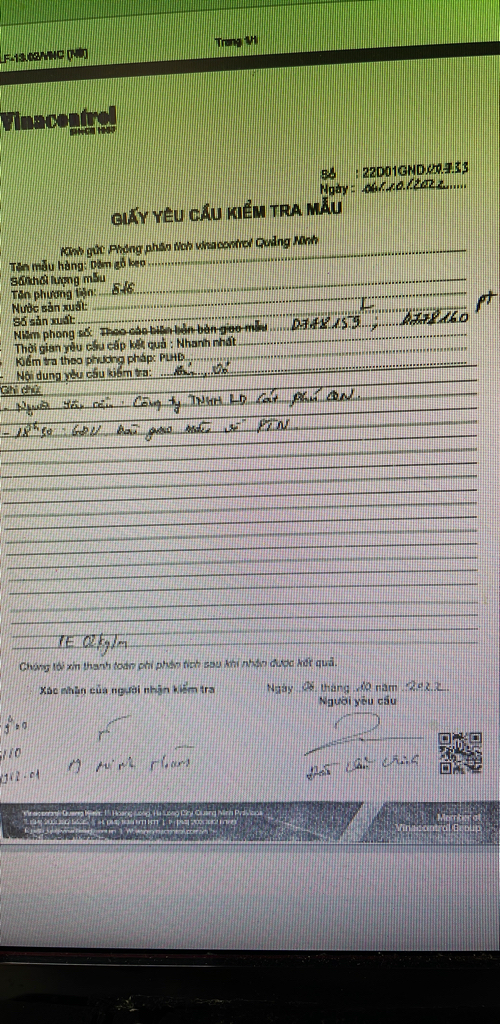 Trang 1/1
Vinacontrol
SINCE 1957
Số : 22D01GND20733
Ngày : 06/10/2022
GIẤY YÊU CẦU KIỂM TRA MẪU
Kính gửi: Phòng phân tích vinacontrol Quảng Ninh
Tên mẫu hàng: Dăm gỗ keo
Số/khối lượng mẫu
Tên phương tiện:
Nước sản xuất:
Số sản xuất:
Niêm phong số: Theo các biên bản bàn giao mẫu D778159 ; D778160
Thời gian yêu cầu cấp kết quả : Nhanh nhất
Kiểm tra theo phương pháp: PLHĐ
Nội dung yêu cầu kiểm tra:
Ghi chú:
- Người yêu cầu : Công ty TNHH LD Cát phú QN.
- 18h30 : GĐV bàn giao mẫu về PTN.
TE 02kg/m
Chúng tôi xin thanh toán phí phân tích sau khi nhận được kết quả.
Xác nhận của người nhận kiểm tra
Ngày 06 tháng 10 năm 2022
Người yêu cầu
Vinacontrol Quảng Ninh: 11 Hoàng Long, Ha Long City, Quang Ninh Province
Member of
Vinacontrol Group